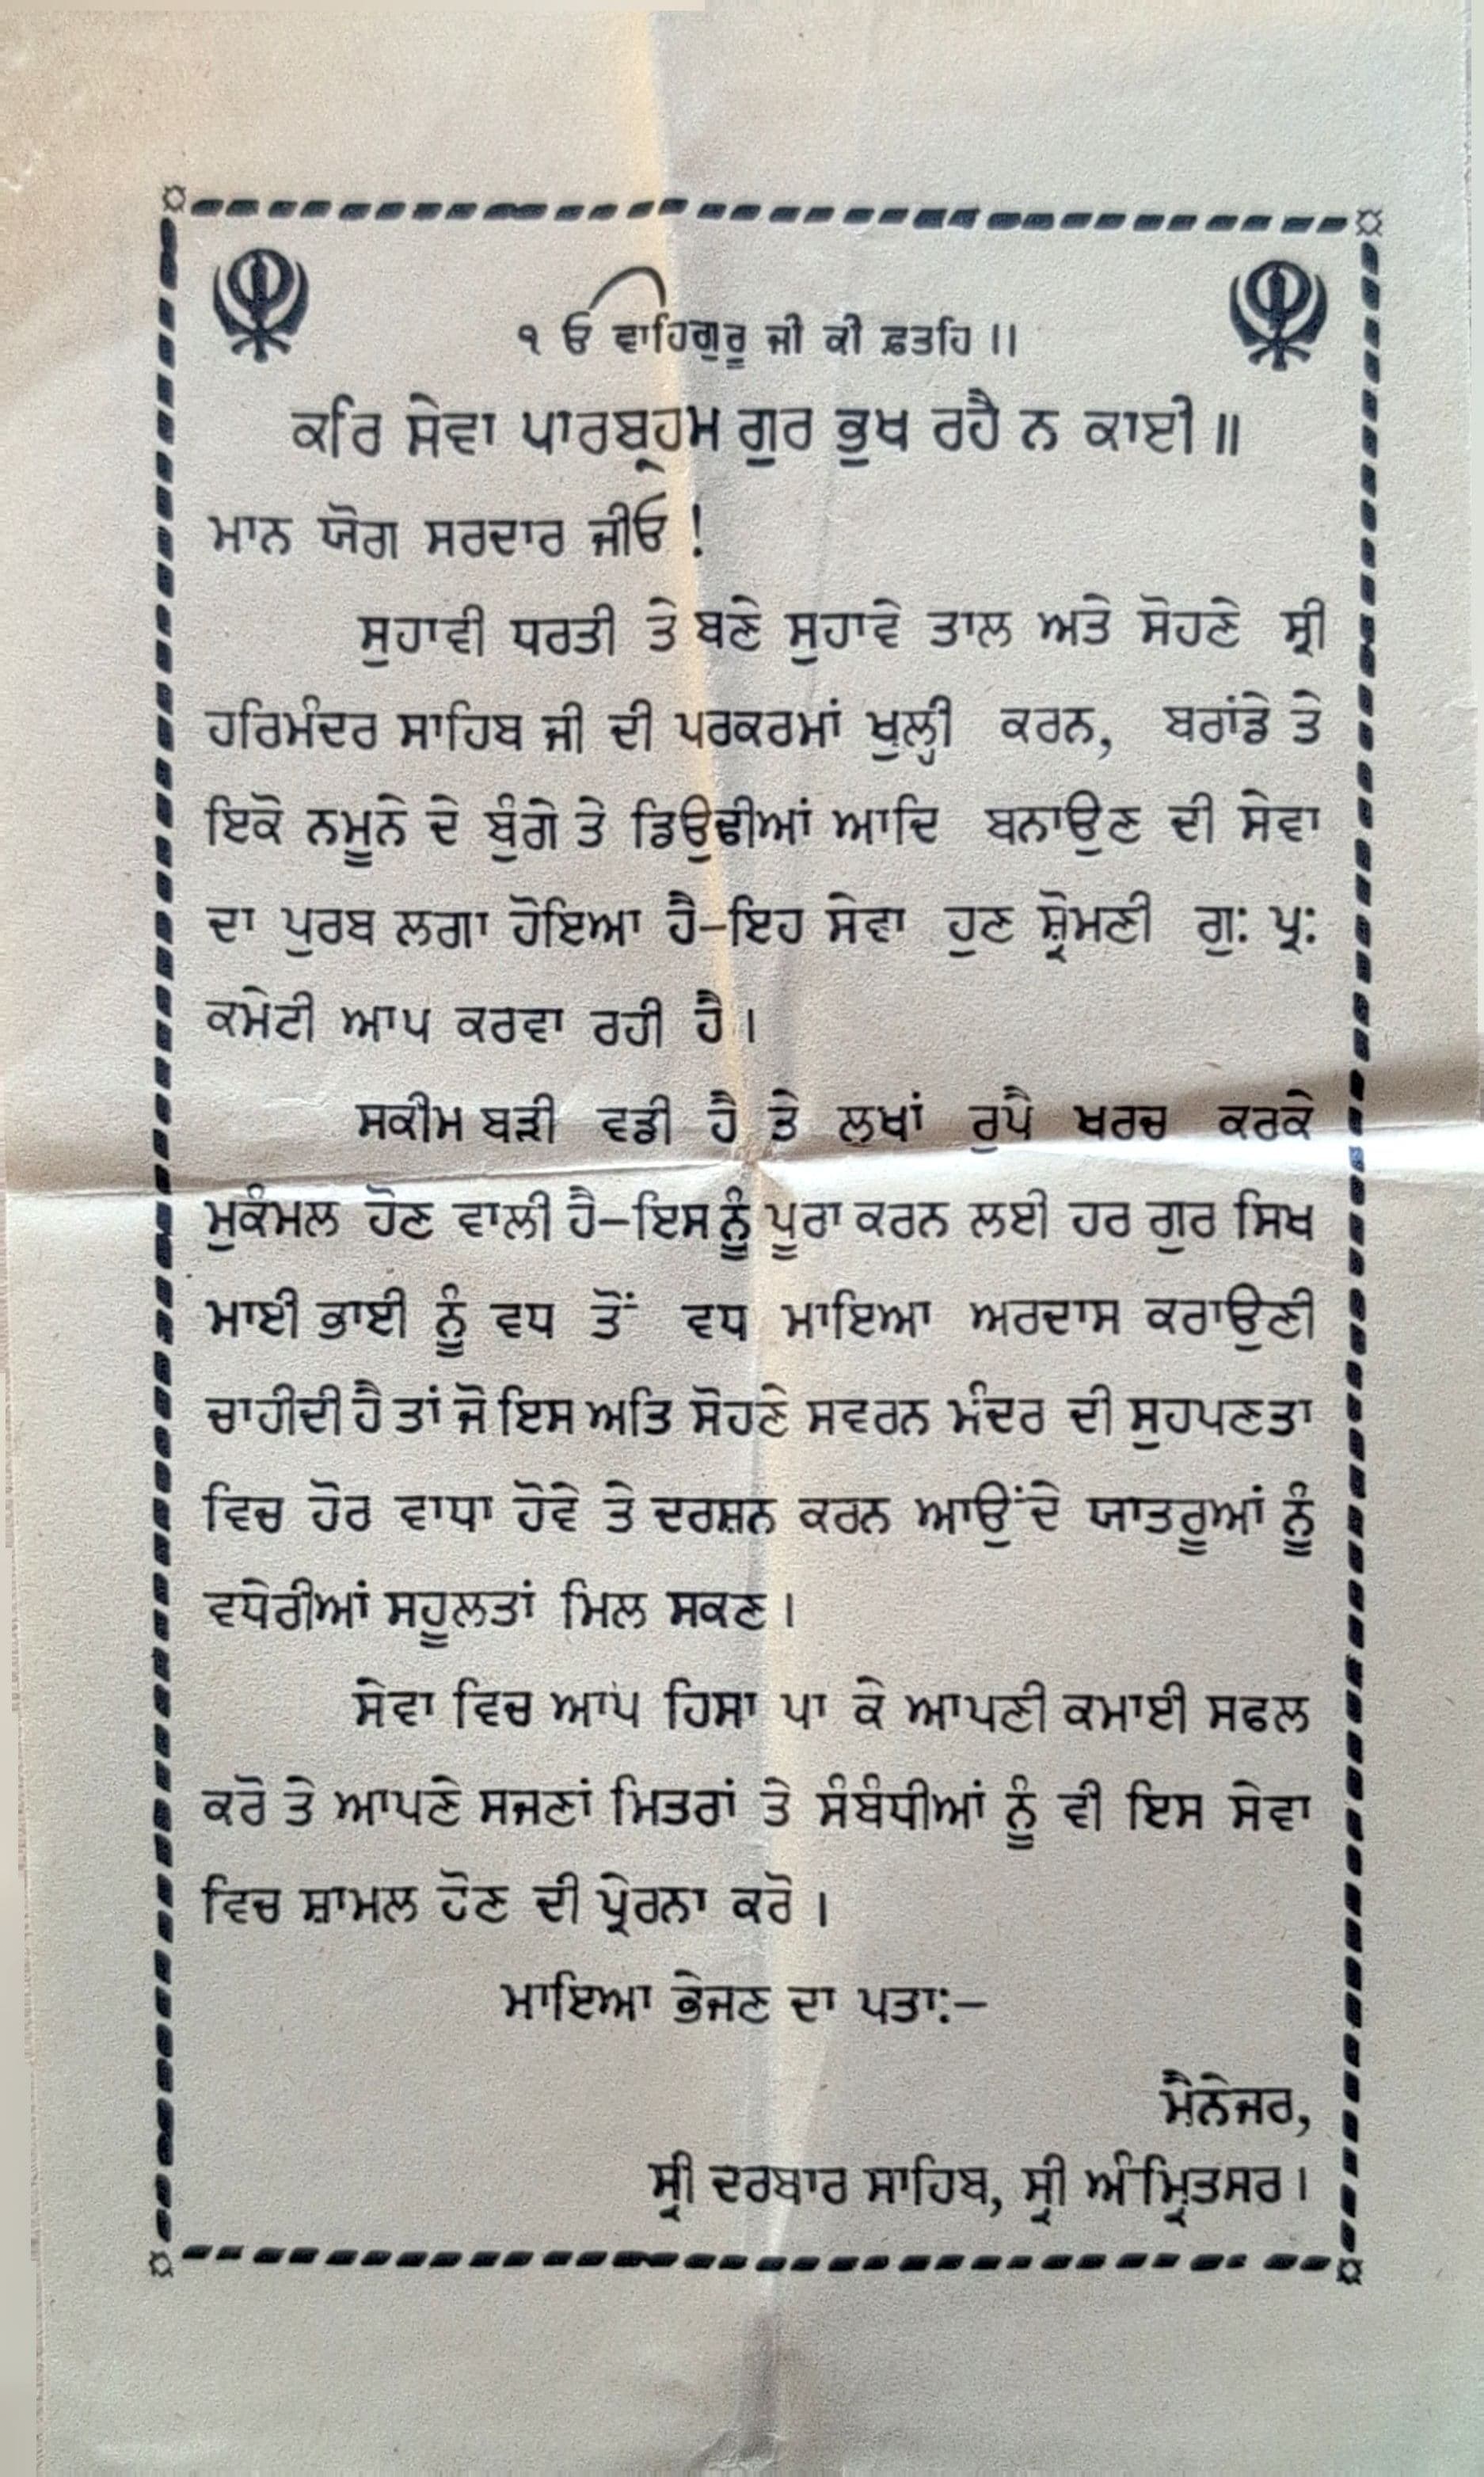 ੴ ਵਾਹਿਗੁਰੂ ਜੀ ਕੀ ਫ਼ਤਹਿ ।।
ਕਰਿ ਸੇਵਾ ਪਾਰਬ੍ਰਹਮ ਗੁਰ ਭੁਖ ਰਹੈ ਨ ਕਾਈ ॥
ਮਾਨ ਯੋਗ ਸਰਦਾਰ ਜੀਓ !
ਸੁਹਾਵੀ ਧਰਤੀ ਤੇ ਬਣੇ ਸੁਹਾਵੇ ਤਾਲ ਅਤੇ ਸੋਹਣੇ ਸ੍ਰੀ
ਹਰਿਮੰਦਰ ਸਾਹਿਬ ਜੀ ਦੀ ਪਰਕਰਮਾਂ ਖੁਲ੍ਹੀ ਕਰਨ, ਬਰਾਂਡੇ ਤੇ
ਇਕੋ ਨਮੂਨੇ ਦੇ ਬੁੰਗੇ ਤੇ ਡਿਉਢੀਆਂ ਆਦਿ ਬਨਾਉਣ ਦੀ ਸੇਵਾ
ਦਾ ਪੁਰਬ ਲਗਾ ਹੋਇਆ ਹੈ–ਇਹ ਸੇਵਾ ਹੁਣ ਸ਼੍ਰੋਮਣੀ ਗੁ: ਪ੍ਰ:
ਕਮੇਟੀ ਆਪ ਕਰਵਾ ਰਹੀ ਹੈ।
ਸਕੀਮ ਬੜੀ ਵਡੀ ਹੈ ਤੇ ਲਖਾਂ ਰੁਪੈ ਖਰਚ ਕਰਕੇ
ਮੁਕੰਮਲ ਹੋਣ ਵਾਲੀ ਹੈ–ਇਸ ਨੂੰ ਪੂਰਾ ਕਰਨ ਲਈ ਹਰ ਗੁਰ ਸਿਖ
ਮਾਈ ਭਾਈ ਨੂੰ ਵਧ ਤੋਂ ਵਧ ਮਾਇਆ ਅਰਦਾਸ ਕਰਾਉਣੀ
ਚਾਹੀਦੀ ਹੈ ਤਾਂ ਜੋ ਇਸ ਅਤਿ ਸੋਹਣੇ ਸਵਰਨ ਮੰਦਰ ਦੀ ਸੁਹਪਣਤਾ
ਵਿਚ ਹੋਰ ਵਾਧਾ ਹੋਵੇ ਤੇ ਦਰਸ਼ਨ ਕਰਨ ਆਉਂਦੇ ਯਾਤਰੂਆਂ ਨੂੰ
ਵਧੇਰੀਆਂ ਸਹੂਲਤਾਂ ਮਿਲ ਸਕਣ।
ਸੇਵਾ ਵਿਚ ਆਪ ਹਿਸਾ ਪਾ ਕੇ ਆਪਣੀ ਕਮਾਈ ਸਫਲ
ਕਰੋ ਤੇ ਆਪਣੇ ਸਜਣਾਂ ਮਿਤਰਾਂ ਤੇ ਸੰਬੰਧੀਆਂ ਨੂੰ ਵੀ ਇਸ ਸੇਵਾ
ਵਿਚ ਸ਼ਾਮਲ ਹੋਣ ਦੀ ਪ੍ਰੇਰਨਾ ਕਰੋ।
ਮਾਇਆ ਭੇਜਣ ਦਾ ਪਤਾ:–
ਮੈਨੇਜਰ,
ਸ੍ਰੀ ਦਰਬਾਰ ਸਾਹਿਬ, ਸ੍ਰੀ ਅੰਮ੍ਰਿਤਸਰ।